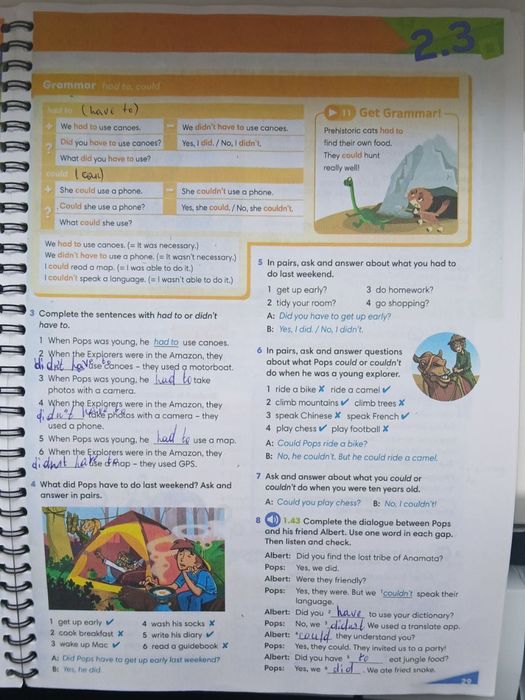 2.3
Grammar had to, could
had to (have to)
+ We had to use canoes.
− We didn't have to use canoes.
? Did you have to use canoes?
Yes, I did. / No, I didn't.
What did you have to use?
could (can)
+ She could use a phone.
− She couldn't use a phone.
? Could she use a phone?
Yes, she could. / No, she couldn't.
What could she use?
We had to use canoes. (= It was necessary.)
We didn't have to use a phone. (= It wasn't necessary.)
I could read a map. (= I was able to do it.)
I couldn't speak a language. (= I wasn't able to do it.)
11 Get Grammar!
Prehistoric cats had to
find their own food.
They could hunt
really well!
3 Complete the sentences with had to or didn't
have to.
1 When Pops was young, he had to use canoes.
2 When the Explorers were in the Amazon, they
didn't have to use canoes – they used a motorboat.
3 When Pops was young, he had to take
photos with a camera.
4 When the Explorers were in the Amazon, they
didn't have to take photos with a camera – they
used a phone.
5 When Pops was young, he had to use a map.
6 When the Explorers were in the Amazon, they
didnt have to use a map – they used GPS.
4 What did Pops have to do last weekend? Ask and
answer in pairs.
1 get up early ✓
2 cook breakfast ✗
3 wake up Mac ✓
4 wash his socks ✗
5 write his diary ✓
6 read a guidebook ✗
A: Did Pops have to get up early last weekend?
B: Yes, he did.
5 In pairs, ask and answer about what you had to
do last weekend.
1 get up early?
2 tidy your room?
3 do homework?
4 go shopping?
A: Did you have to get up early?
B: Yes, I did. / No, I didn't.
6 In pairs, ask and answer questions
about what Pops could or couldn't
do when he was a young explorer.
1 ride a bike ✗ ride a camel ✓
2 climb mountains ✓ climb trees ✗
3 speak Chinese ✗ speak French ✓
4 play chess ✓ play football ✗
A: Could Pops ride a bike?
B: No, he couldn't. But he could ride a camel.
7 Ask and answer about what you could or
couldn't do when you were ten years old.
A: Could you play chess? B: No, I couldn't!
8 1.43 Complete the dialogue between Pops
and his friend Albert. Use one word in each gap.
Then listen and check.
Albert: Did you find the lost tribe of Anamata?
Pops: Yes, we did.
Albert: Were they friendly?
Pops: Yes, they were. But we ¹couldn't speak their
language.
Albert: Did you ² have to use your dictionary?
Pops: No, we ³ didnt. We used a translate app.
Albert: ⁴could they understand you?
Pops: Yes, they could. They invited us to a party!
Albert: Did you have ⁵ to eat jungle food?
Pops: Yes, we ⁶ did. We ate fried snake.
29